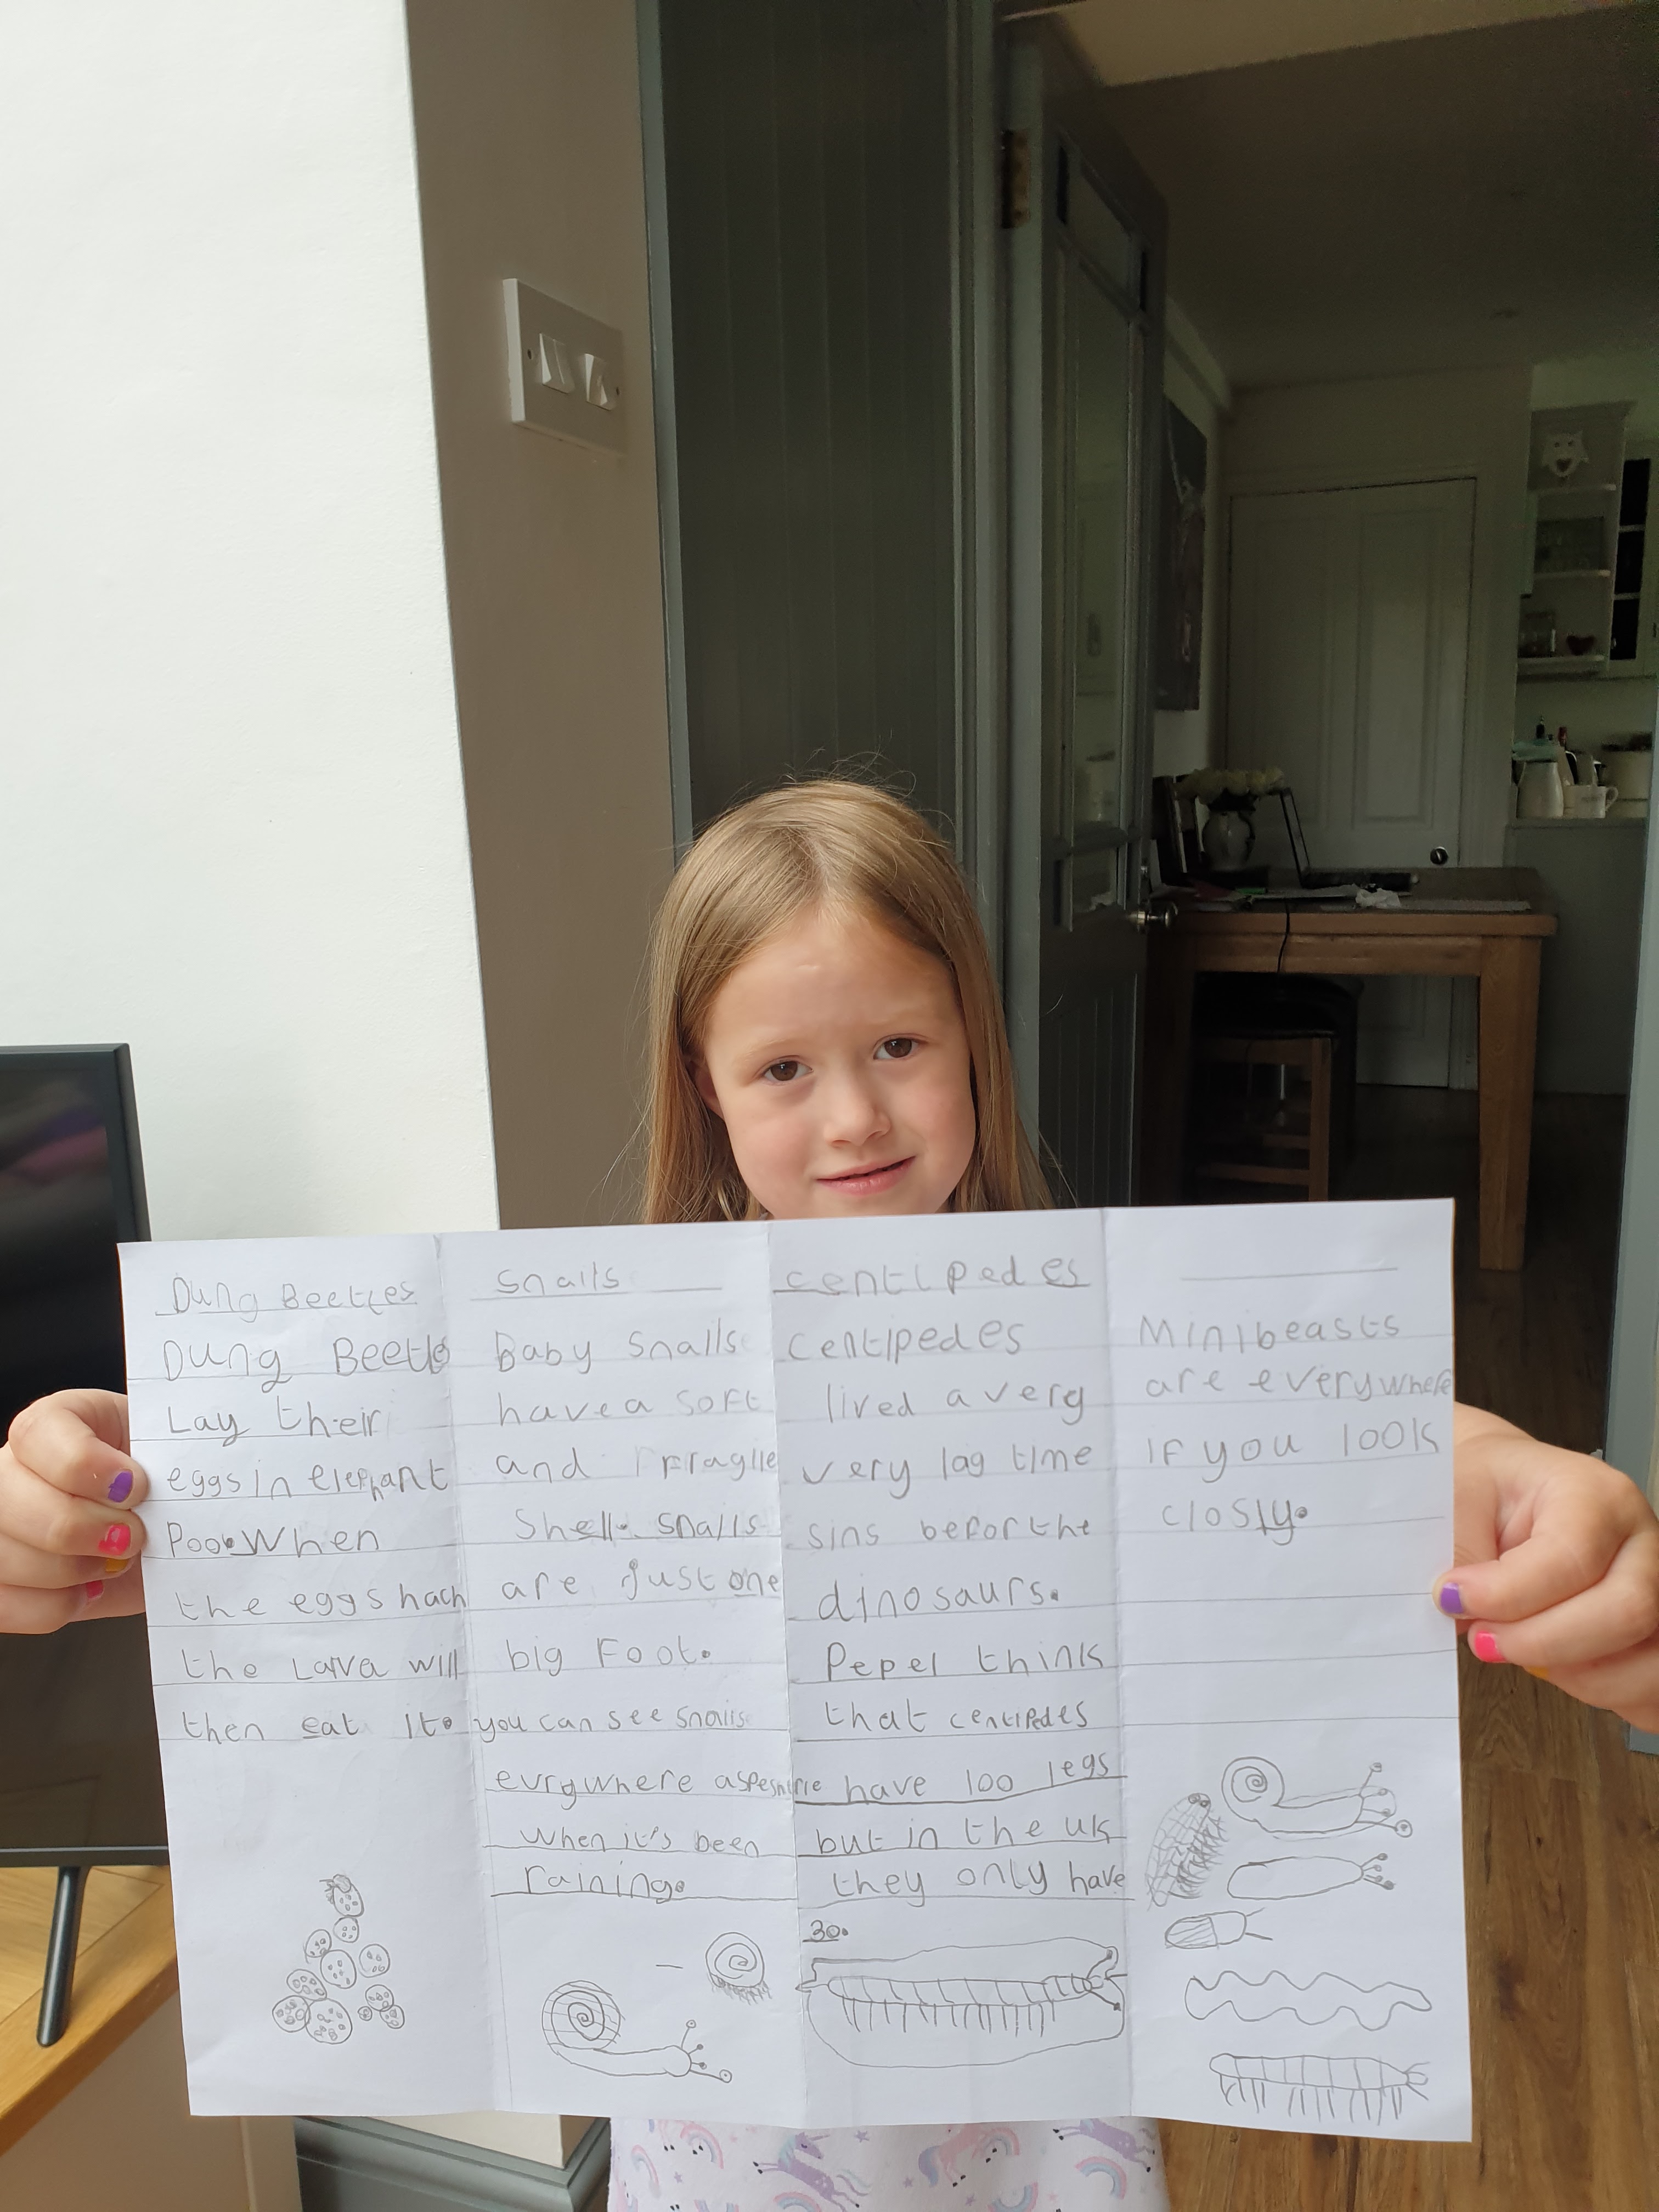 Dung Beetles
Dung Beetls
Lay their
eggs in elephant
Poo. When
the eggs hach
the Larva will
then eat it.
Snails
Baby Snails
have a soft
and fragile
Shell. snails
are just one
big Foot.
you can see snails
evrywhere
when it's been
raining.
centipedes
Centipedes
lived a very
very lag time
sins befor the
dinosaurs.
Pepel think
that centipedes
have 100 legs
but in the uk
they only have
30.
Minibeasts
are everywhere
if you look
closly.